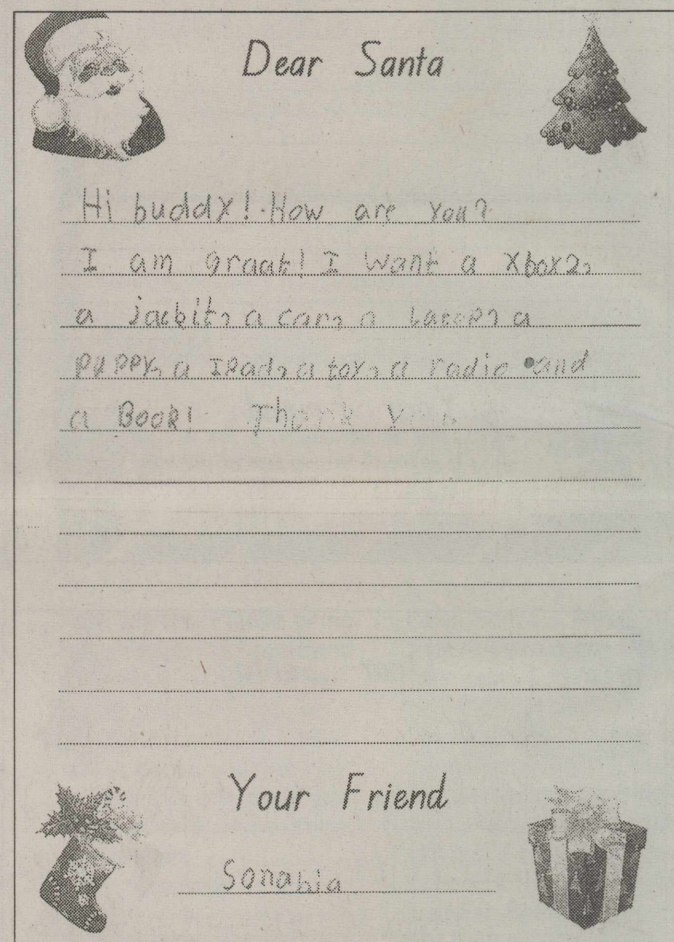 Dear Santa
Hi buddy! How are you?
I am graat! I want a xbox2,
a jackit, a car, a a
puppy, a IPad, a toy, a radio and
a Book! Thank you
Your Friend